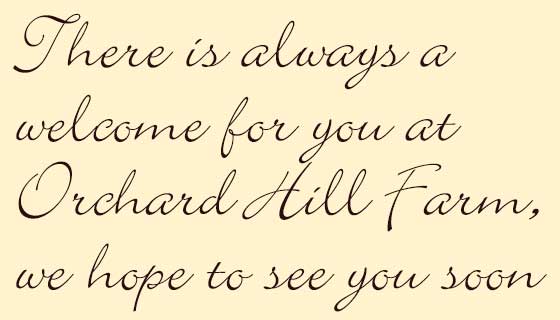 There is always a
welcome for you at
Orchard Hill Farm,
we hope to see you soon